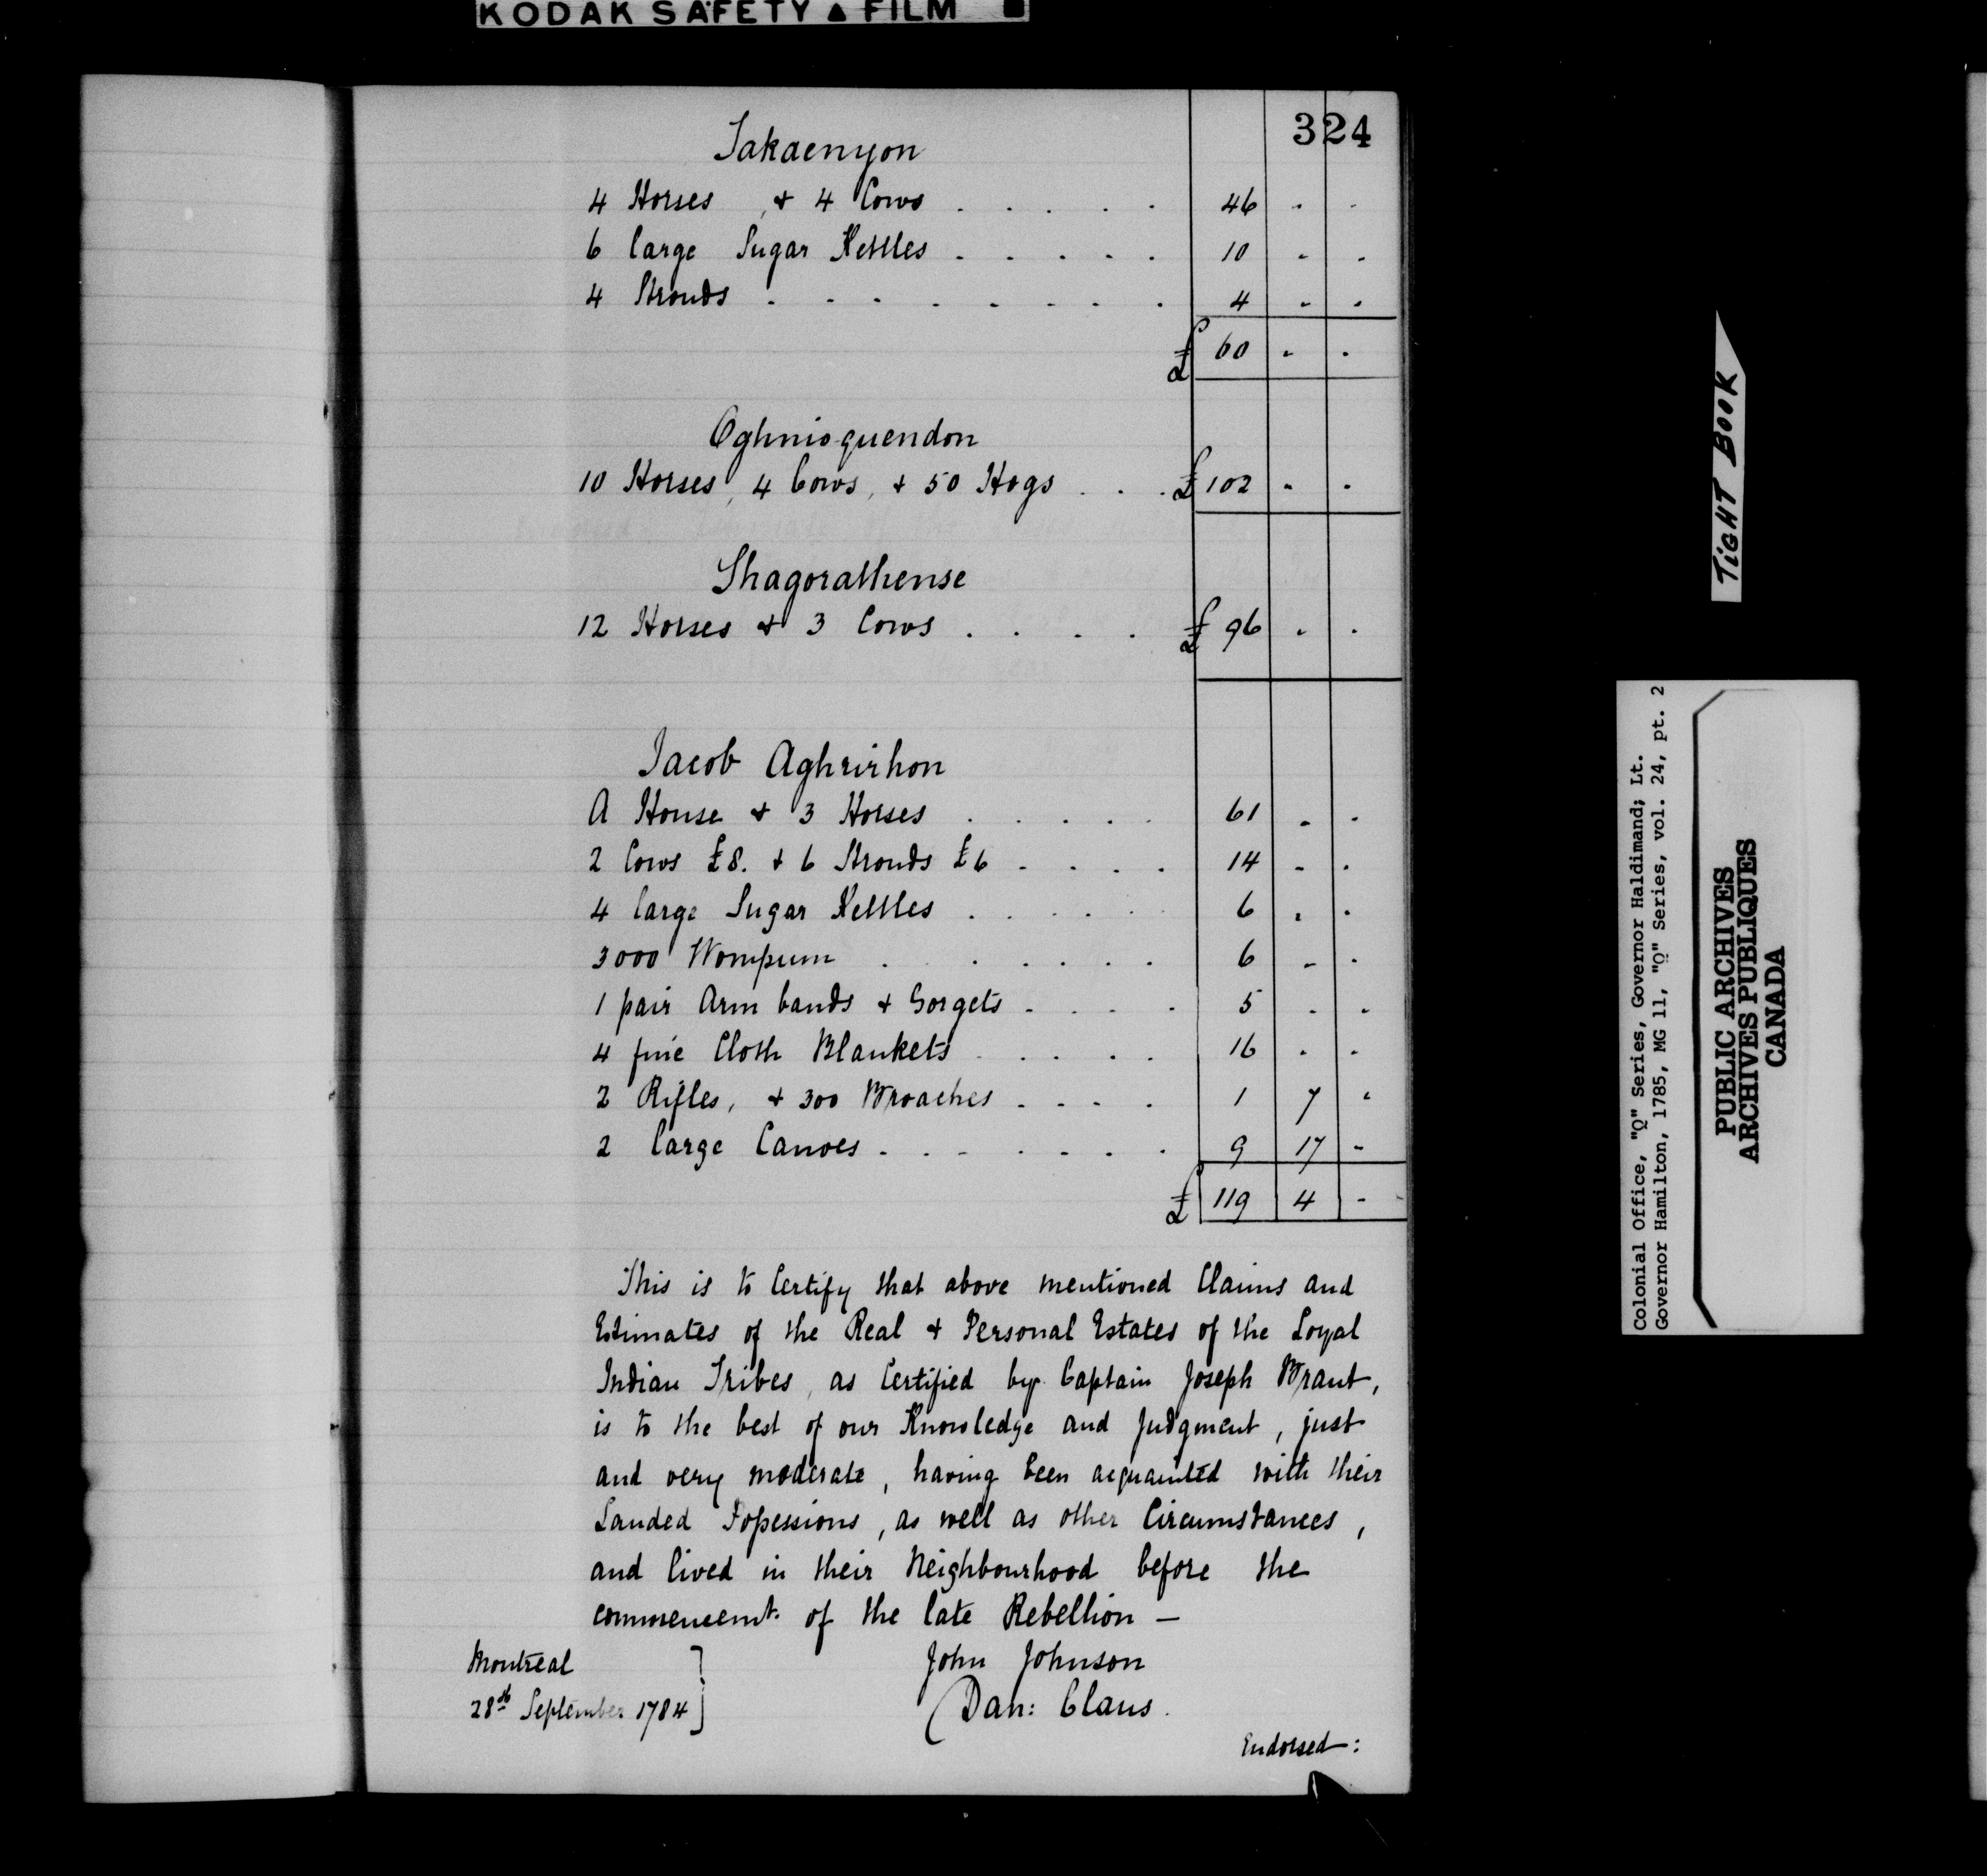 KODAK SAFETY ▲ FILM
324
Takaenyon
4 Horses, & 4 Cows . . . . . 46 - -
6 large Sugar Kettles . . . . . 10 - -
4 Strouds . . . . . . . . 4 - -
£ 60 - -
Oghnioquendon
10 Horses, 4 Cows, & 50 Hogs . . . £ 102 - -
Shagorathense
12 Horses & 3 Cows . . . . £ 96 - -
Jacob Aghrirhon
A House & 3 Horses . . . . . 61 - -
2 Cows £8. & 6 Strouds £6 . . . . 14 - -
4 large Sugar Kettles . . . . . 6 - -
3000 Wompum . . . . . . 6 - -
1 pair Arm bands & Gorgets . . . . 5 - -
4 fine Cloth Blankets . . . . 16 - -
2 Rifles, & 300 Broaches . . . . 1 7 -
2 large Canoes . . . . . . . 9 17 -
£ 119 4 -
This is to Certify that above mentioned Claims and
Estimates of the Real & Personal Estates of the Loyal
Indian Tribes, as Certified by Captain Joseph Brant,
is to the best of our Knowledge and Judgment, just
and very moderate, having been acquainted with their
Landed Possessions, as well as other Circumstances,
and lived in their Neighbourhood before the
commencemt. of the late Rebellion —
Montreal
28th September 1784
John Johnson
Dan: Claus.
Endorsed:
TIGHT BOOK
Colonial Office, "Q" Series, Governor Haldimand; Lt.
Governor Hamilton, 1785, MG 11, "Q" Series, vol. 24, pt. 2
PUBLIC ARCHIVES
ARCHIVES PUBLIQUES
CANADA